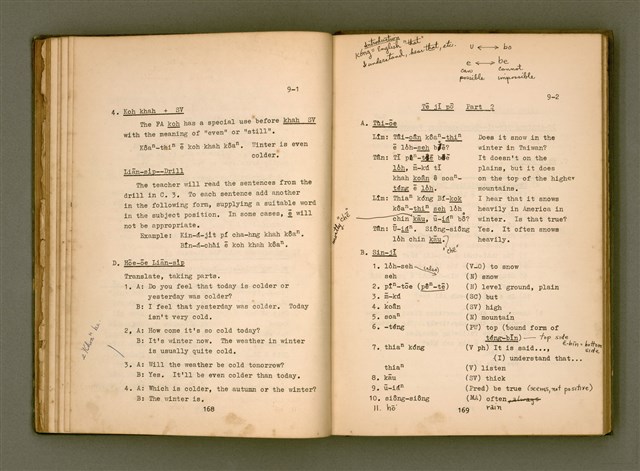 9-1
4. Koh khah + SV
The FA koh has a special use before khah SV
with the meaning of "even" or "still".
Kôaⁿ-thiⁿ ē koh khah kôaⁿ. Winter is even
colder.
Liān-sip-Drill
The teacher will read the sentences from the
drill in C. 3. To each sentence add another
in the following form, supplying a suitable word
in the subject position. In some cases, ē will
not be appropriate.
Example: Kin-á-jit pí cha-hng khah kôaⁿ.
Bîn-á-chài ē koh khah kôaⁿ.
D. Hōe-ōe Liān-sip
Translate, taking parts.
1. A: Do you feel that today is colder or
yesterday was colder?
B: I feel that yesterday was colder. Today
isn't very cold.
2. A: How come it's so cold today?
B: It's winter now. The weather in winter
is usually quite cold.
3. A: Will the weather be cold tomorrow?
B: Yes. It'll be even colder than today.
4. A: Which is colder, the autumn or the winter?
B: The winter is.
168
introduction
kóng = English "that"
I understand, hear that, etc.
u ⟷ bo
e ⟷ be
can cannot
possible impossible
9-2
Tē jī pō Part 2
A. Tùi-ōe
Lîm: Tâi-oân kôaⁿ-thiⁿ Does it snow in the
ē lòh-seh bô? winter in Taiwan?
Tân: It doesn't on the
lòh, m̄-kú tī plains, but it does
khah koân ê soaⁿ- on the top of the higher
téng ē lòh. mountains.
Lîm: Thiaⁿ kóng Bí-kok I hear that it snows
kôaⁿ-thiⁿ seh lòh heavily in America in
chin kāu, ū-iáⁿ bô? winter. Is that true?
Tân: Ū-iáⁿ. Siông-siông Yes. It often snows
lòh chin kāu. heavily.
B. Sin-jī
1. lòh-seh (V-O) to snow
seh (N) snow
2. pîⁿ-tōe (pêⁿ-tē) (N) level ground, plain
3. m̄-kú (SC) but
4. koân (SV) high
5. soaⁿ (N) mountain
6. -téng (PW) top (bound form of
téng-bīn) — top side
7. thiaⁿ kóng (V ph) It is said...,
(I) understand that...
thiaⁿ (V) listen
8. kāu (SV) thick
9. ū-iáⁿ (Pred) be true
10. siông-siông (MA) often
11. hō rain
169